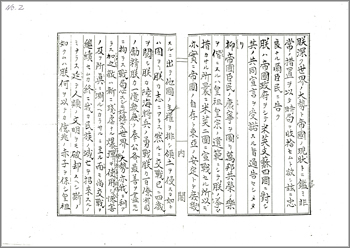 朕深ク世界ノ大勢ト帝國ノ現狀トニ鑑ミ非
常ノ措置ヲ以テ時局ヲ收拾セムト欲シ茲ニ忠
良ナル爾臣民ニ告ク
朕ハ帝國政府ヲシテ米英支蘇四國ニ對シ
其ノ共同宣言ヲ受諾スル旨通告セシメタリ
抑々帝國臣民ノ康寧ヲ圖リ萬邦共榮ノ樂
ヲ偕ニスルハ皇祖皇宗ノ遺範ニシテ朕ノ拳々
措カサル所曩ニ米英二國ニ宣戰セル所以モ
亦實ニ帝國ノ自存ト東亞ノ安定トヲ庶幾
スルニ出テ他國ノ主權ヲ排シ領土ヲ侵スカ如キ
ハ固ヨリ朕カ志ニアラス然ルニ交戰已ニ四歲
ヲ閲シ朕カ陸海將兵ノ勇戰朕カ百僚有司ノ
勵精朕カ一億衆庶ノ奉公各々最善ヲ盡セル
ニ拘ラス戰局
及フ所眞ニ測ルヘカラサルニ至ル而モ尚交戰ヲ
繼續セムカ終ニ我カ民族ノ滅亡ヲ招來スル
ノミナラス延テ人類ノ文明ヲモ破却スヘシ斯ノ
如クムハ朕何ヲ以テカ億兆ノ赤子ヲ保シ皇祖